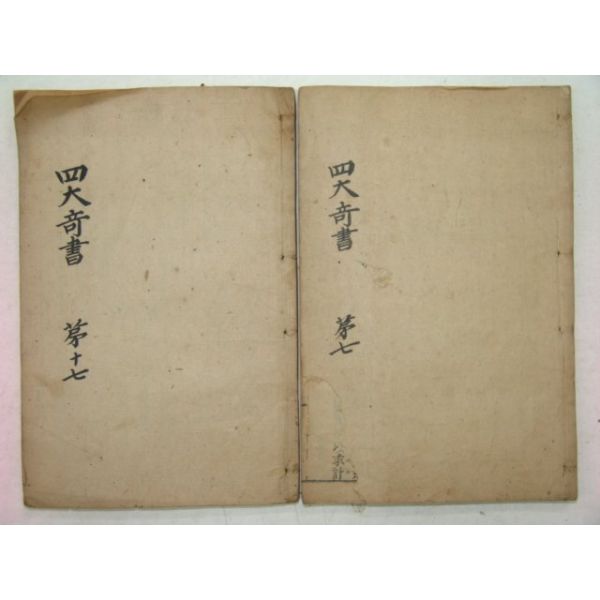 四大奇書
第十七
四大奇書
第七